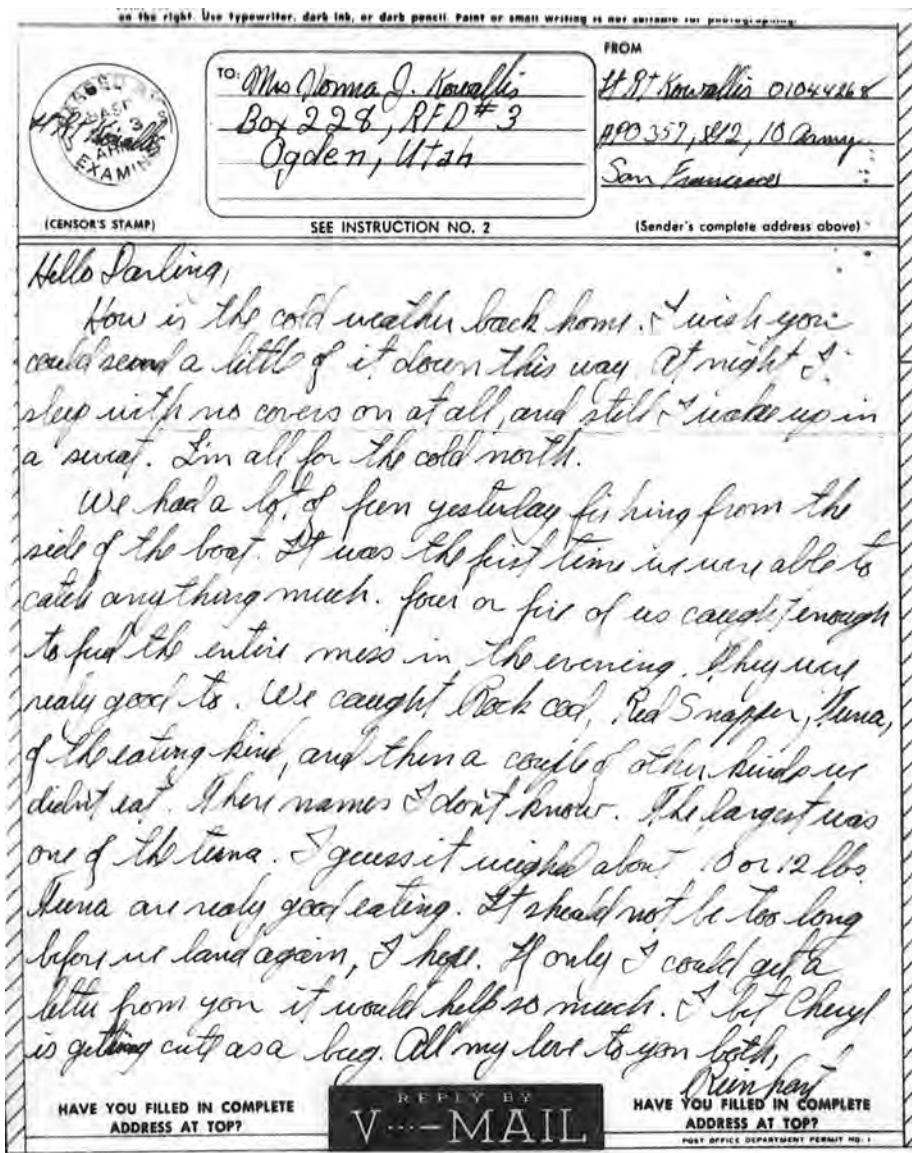 on the right. Use typewriter, dark ink, or dark pencil. Paint or small writing is not suitable for photographing.
PASSED BY
BASE
3
ARMY
EXAMINER
Lt R Kowallis
(CENSOR'S STAMP)
TO: Mrs Norma J. Kowallis
Box 228, RFD #3
Ogden, Utah
SEE INSTRUCTION NO. 2
FROM
Lt R Kowallis 01044268
APO 357, 10 Army
San Francisco
(Sender's complete address above)
Hello Darling,
How is the cold weather back home. I wish you
could send a little of it down this way. At night I
sleep with no covers on at all, and still I wake up in
a sweat. I'm all for the cold north.
We had a lot of fun yesterday fishing from the
side of the boat. It was the first time we were able to
catch anything much. four or five of us caught enough
to feed the entire mess in the evening. They were
realy good to. We caught Rock cod, Red Snapper, Tuna,
of the eating kind, and then a couple of other kinds we
didn't eat. There names I don't know. The largest was
one of the tuna. I guess it weighed about 10 or 12 lbs.
Tuna are realy good eating. It should not be too long
before we land again, I hope. If only I could get a
letter from you it would help so much. I bet Cheryl
is getting cute as a bug. All my love to you both,
Reinhart
HAVE YOU FILLED IN COMPLETE
ADDRESS AT TOP?
REPLY BY
V···—MAIL
HAVE YOU FILLED IN COMPLETE
ADDRESS AT TOP?
POST OFFICE DEPARTMENT PERMIT NO. 1